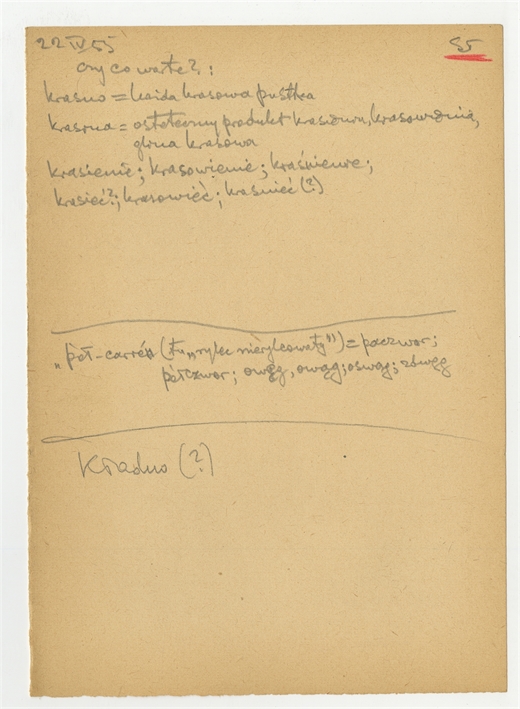 22 IV 55
55
czy co warte?:
krasno = każda krasowa pustka
krasna = ostateczny produkt krasienia, krasowienia,
glina krasowa
krasienie; krasowienie; kraśnienie;
krasieć?; krasowieć; kraśnieć (?)
"pół-carrée" (
nierylcowaty") = paczwor;
półczwor; owęg, owąg; oswęg; zówęg
Kradno (?)